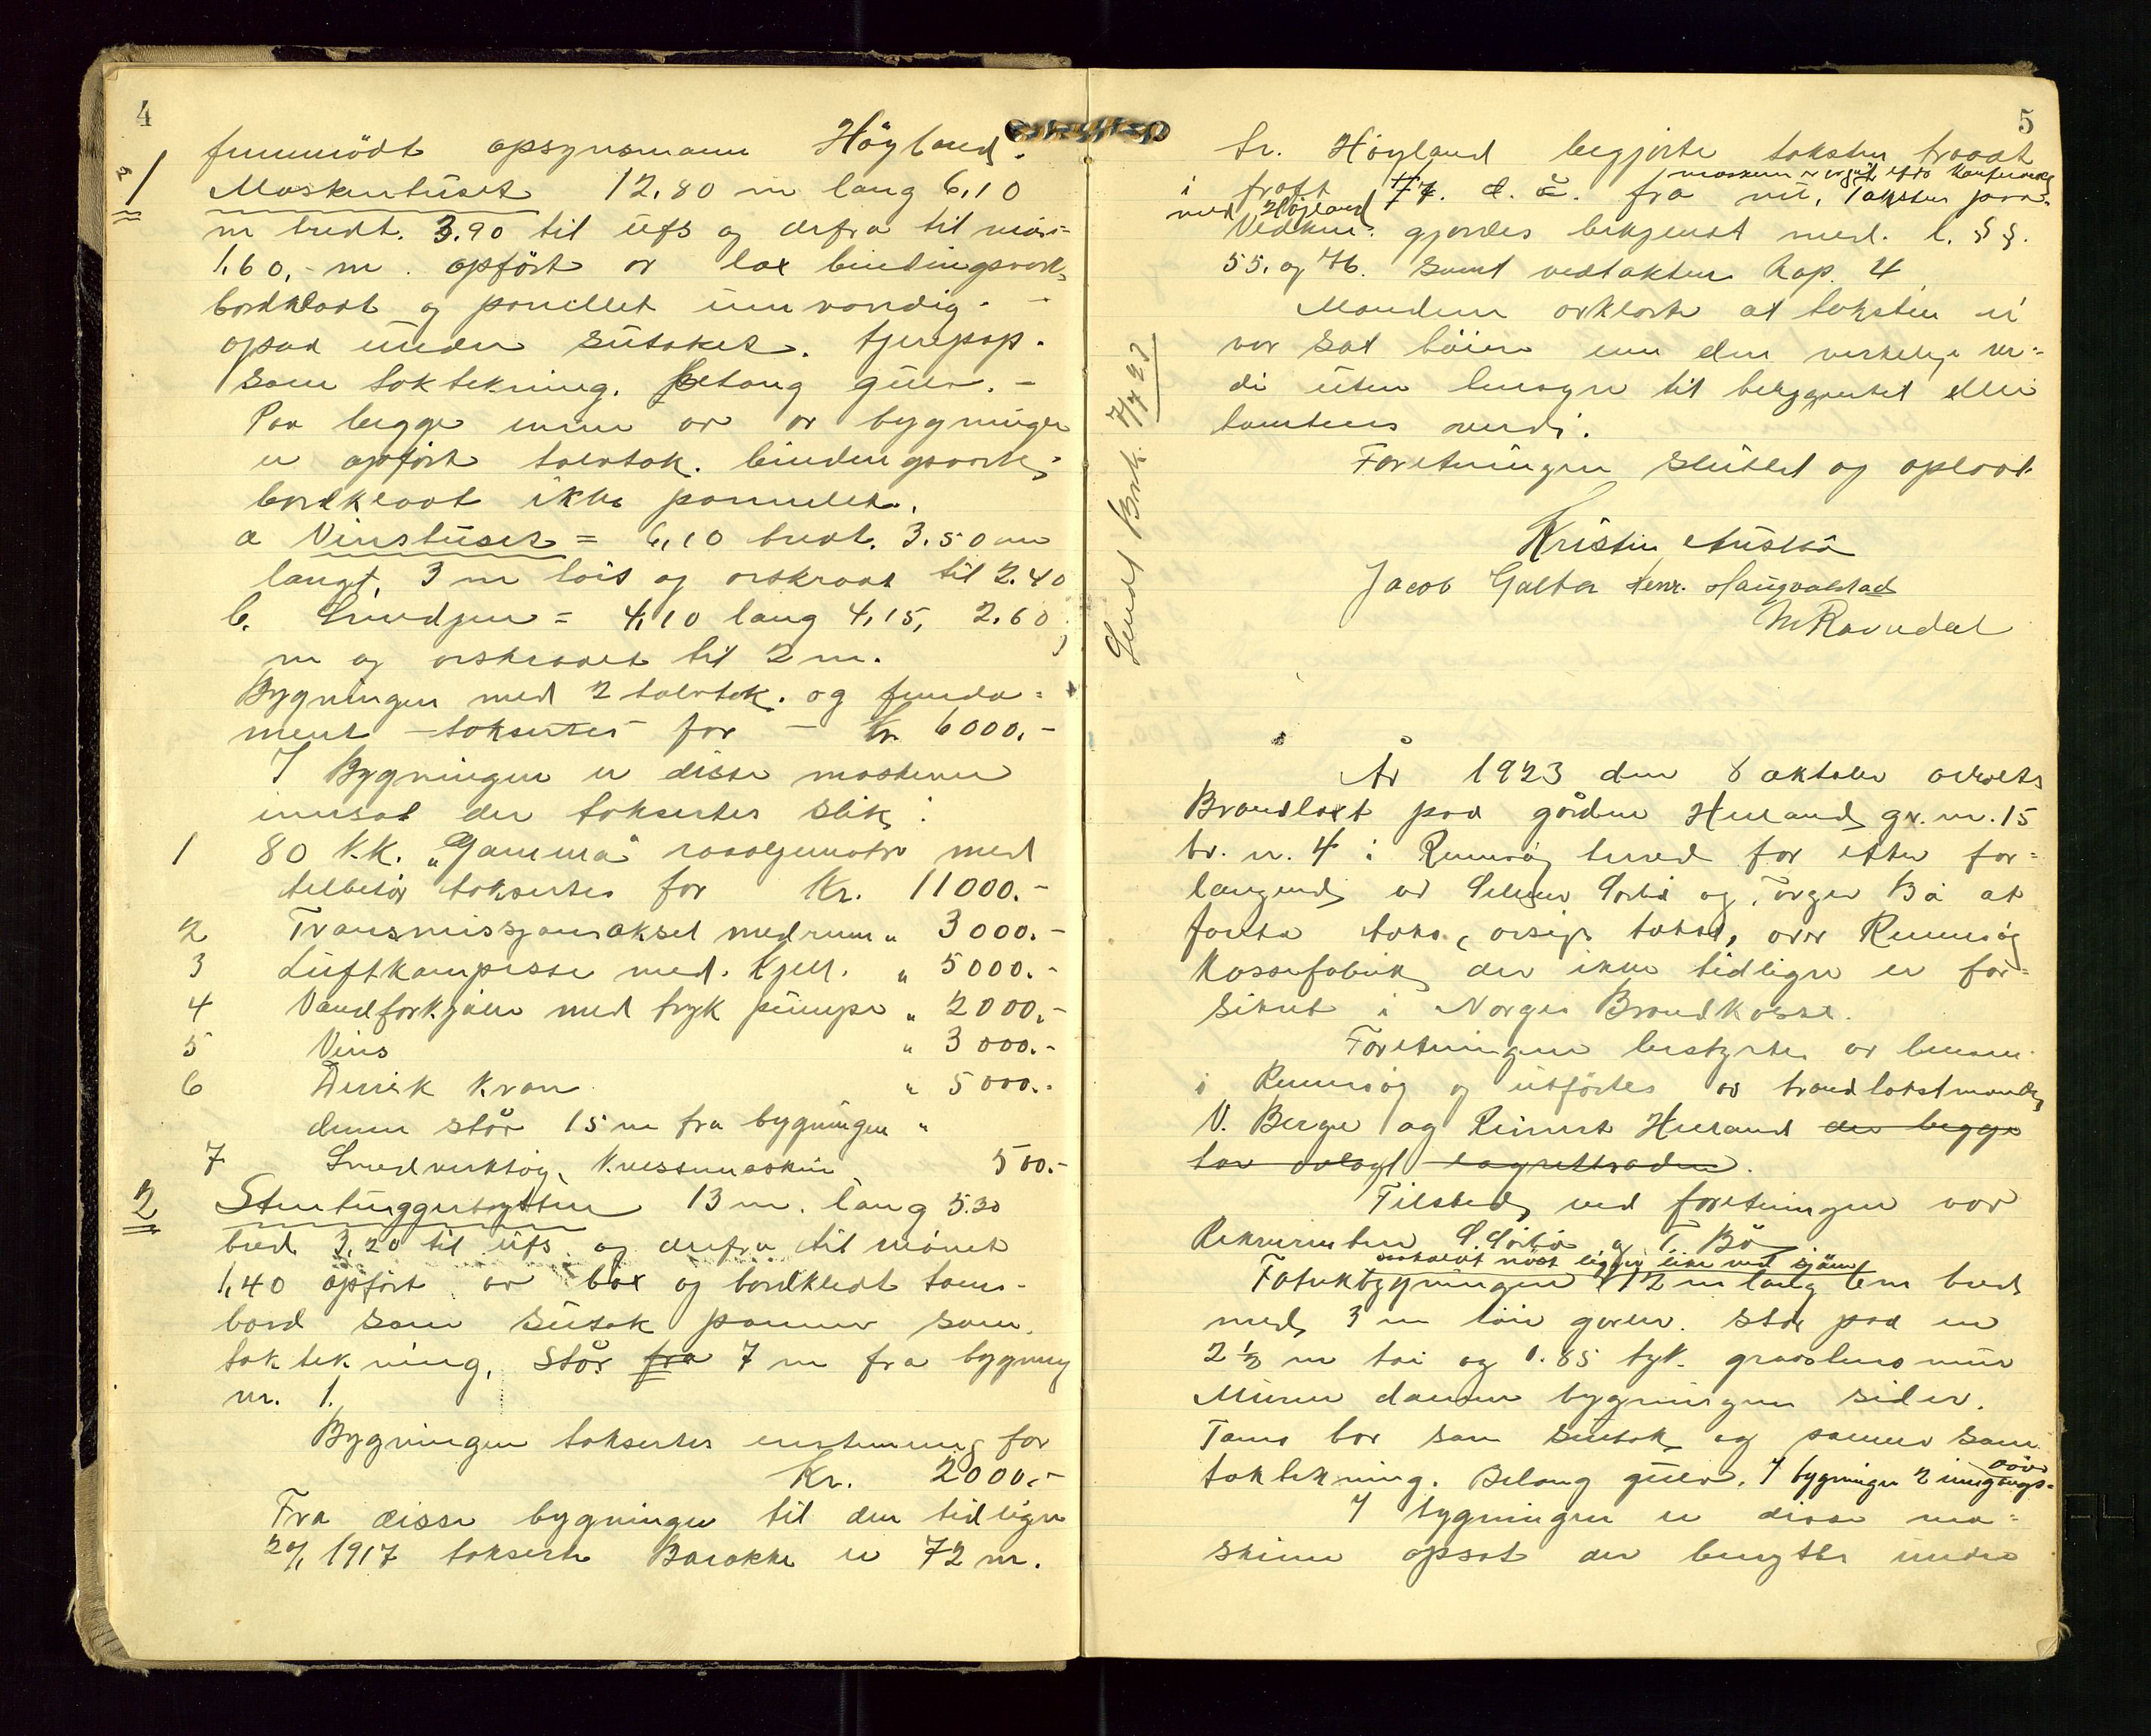 4
fremmødt opsynsmann Höyland.
1 Maskinhuset 12,80 m lang 6,10
m bredt. 3.90 til ufs og derfra til möns=
1,60,- m. opfört av lax bindingsverk,
bordklædt og panellet innvendig. -
opad under sutaket. tjærepap.
som taktekning. Betong gulv. -
Paa begge ender av bygningen
er opfört halvtak. bindingsverk,
bordklædt ikke pannelet.
a Vinshuset = 6,10 bredt. 3.50 m
langt, 3 m höit og avskraat til 2.40
b. Smedjen = 4,10 lang 4,15, 2,60
m og avskraaet til 2 m.
Bygningen med 2 halvtak. og funda=
ment - takseres for - Kr 6000.-
I Bygningen er disse maskiner
innsat der takseres slik:
1 80 h.k. "Gamma" raaoljemotor med
tilbehör takseres for Kr. 11000.-
2 Transmissjonsaksel med rem " 3000.-
3 Luftkompressor med. Kjell. " 5000.-
4 Vandforkjöler med tryk pumpe " 2000.-
5 Vins " 3000.-
6 Derrik kran " 5000.-
denne står 15 m fra bygningen "
7 Smedverktöy, kvessemaskin 500.-
2 Stenhuggerhytten 13 m. lang 5.20
bred 3,20 til ufs og derfra til mönet
1,40 opfört av lax og bordkledt tom-
bord som sutak panner som
taktekning, står fra 7 m fra bygning
nr. 1.
Bygningen takseres enstemmig for
Kr. 2000.-
Fra disse bygninger til den tidligere
20/1 1917 takserte Barakke er 72 m.
5
hr. Höyland begjerte taksten traadt
i kraft d. d. fra nu, Taksten paa-
med Höyland
Vedkm. gjordes bekjent med. l. § §.
55. og 76. samt vedtakten kap. 4
Mændene erklærte at taksten ei
var sat höiere enn den virkelige ver=
di uten hensyn til beliggenhet eller
tomtens verdi.
Forretningen sluttet og oplæst
Kristen Auskå
Jacob Galta Henr. Haugvalstad
M Ravndal
Sendt Brk. 7/7 23
År 1923 den 8 oktober avholdtes
Brandtakst paa gården Helland gr. nr. 15
br. n. 4 i Rennesöy herred for efter for=
langende av Selmer Sörbö og Torger Bö at
foreta taks, avsigt takst, over Rennesöy
Kassefabrik, der ikke tidligere er for=
sikret i Norges Brandkasse.
Forretningen bestyrtes av lensm.
i Rennesöy og utförtes av brandtakstmændene,
V. Berge og Reinert Helland der begge
har avlagt lagrettseden.
Tilstede ved forretningen var
Rekvirenten S. Sörbö og T. Bö
Fabrikbygningen 12 m lang 6 m bred
med 3 m höie gavler. står paa en
2 ½ m höi og 0.85 tyk. graastens mur
Muren danner bygningens sider.
Tams bor som sutak og panner som
taktekning. Betong gulv. I bygningen 2 inngangs=
döre
I bygningen er disse ma=
skiner opsat der benyttes under